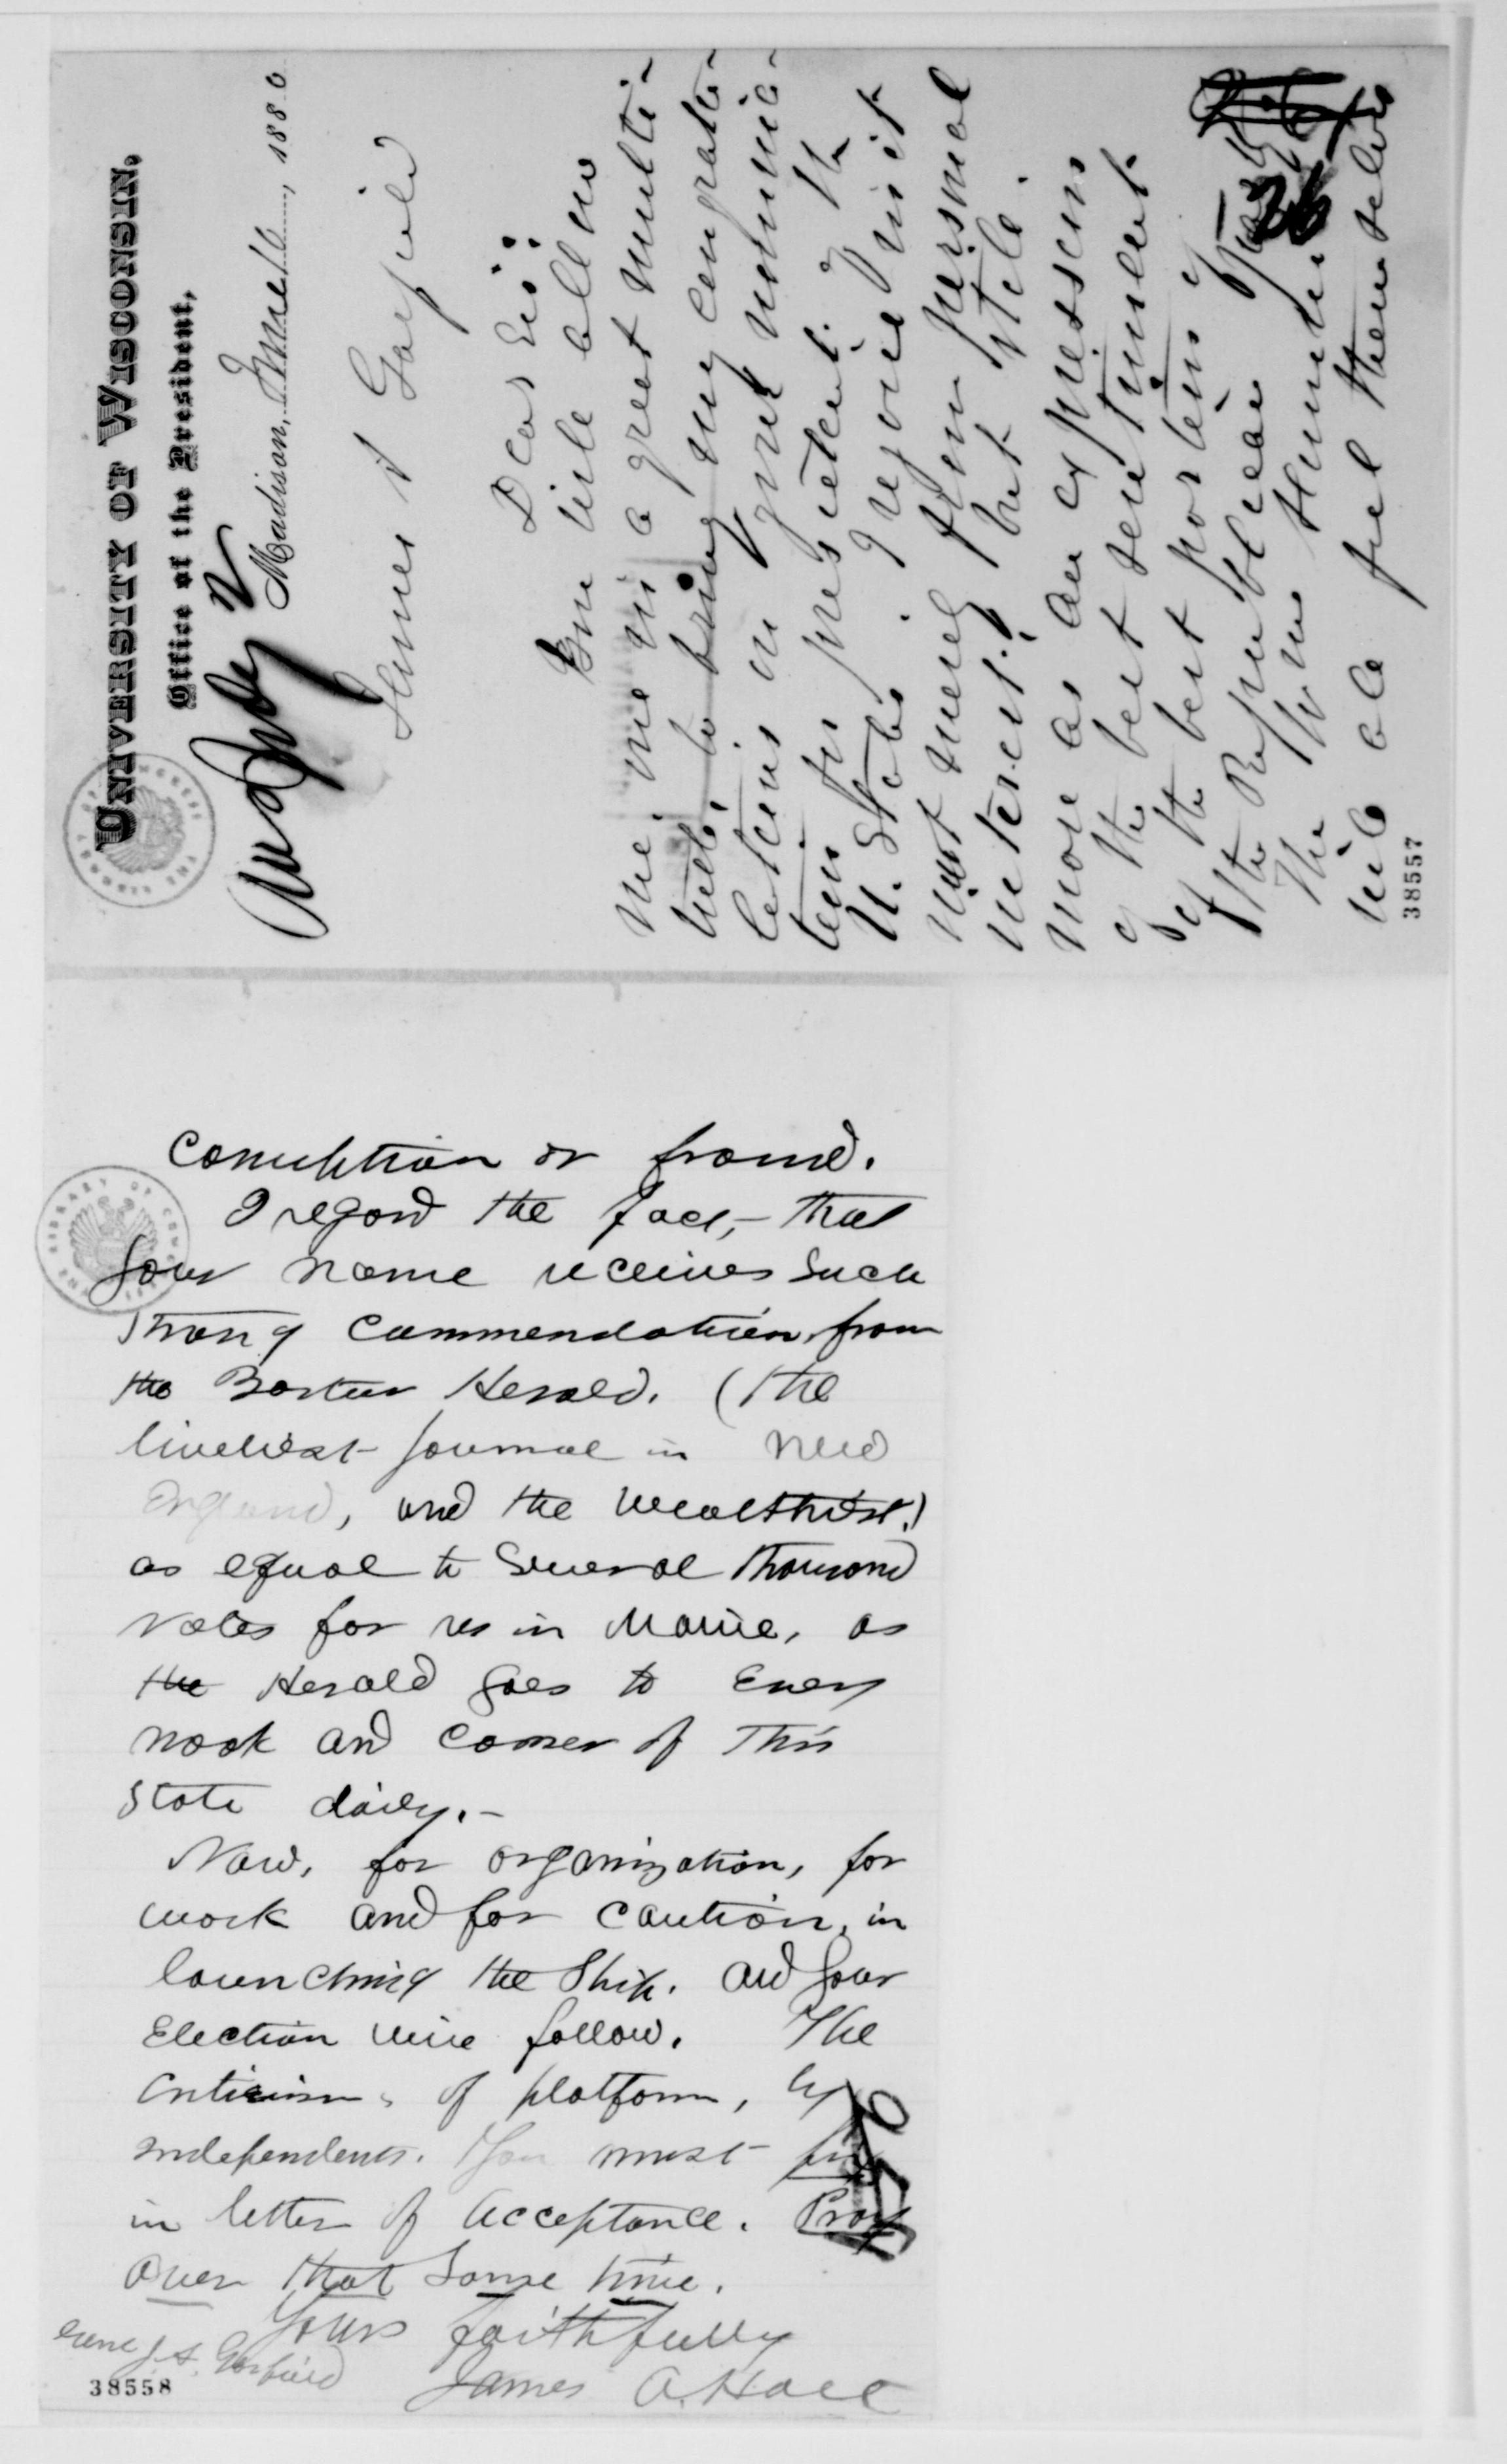 UNIVERSITY OF WISCONSIN.
Office of the President,
Madison, June 11, 1880
James A Garfield
Dear Sir:
You will allow
me, in a great multi-
tude, to bring my congratu-
lations on your nomina-
tion for president of the
U. States. I rejoice in it
not merely from personal
interest, but still
more as an expression
of the best sentiment
of the best portion of
the Republican party
The four hundred
will all feel themselves
38557
26
Corruption or fraud.
I regard the fact, that
your name receives such
strong commendation from
the Boston Herald. (The
liveliest journal in New
England, and the wealthiest.)
as equal to several thousand
votes for us in Maine, as
the Herald goes to every
nook and corner of this
State daily.-
Now, for organization, for
work and for caution, in
launching the Ship. and your
Election will follow. The
criticisms of platform, by
independents. You must fix
in letter of acceptance. Pray
over that some time.
Yours faithfully
James A. Hall
Genl J. A. Garfield
38558